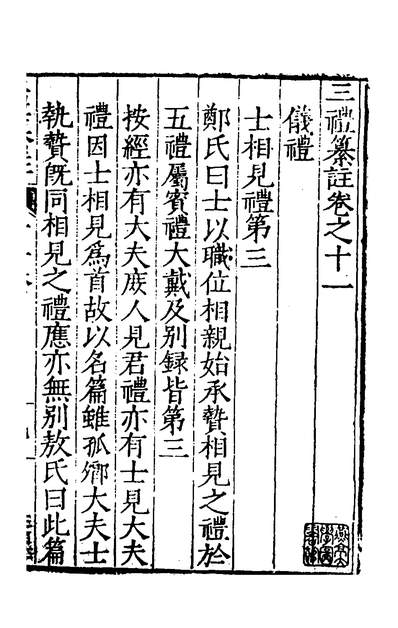 三禮纂註卷之十一
儀禮
士相見禮第三
鄭氏曰士以職位相親始承贄相見之禮於
五禮屬賓禮大戴及別録皆第三
按經亦有大夫庶人見君禮亦有士見大夫
禮因士相見爲首故以名篇雖孤卿大夫士
執贄旣同相見之禮應亦無別敖氏曰此篇